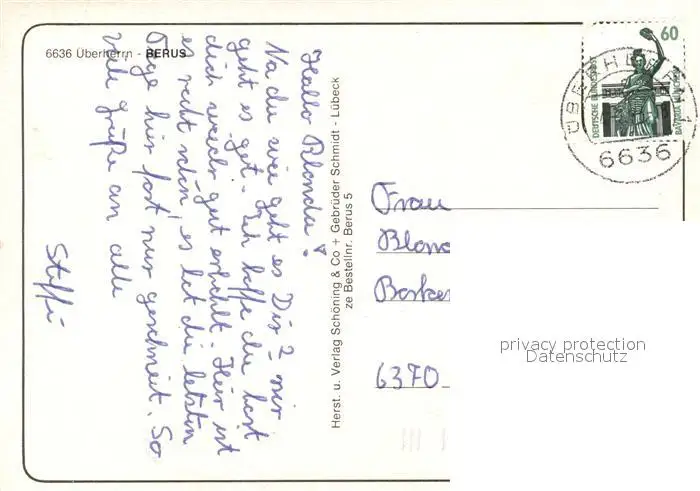 6636 Überherrn - BERUS
Hallo Blondie!
Na du wie geht es Dir? mir
geht es gut. Ich hoffe du hast
dich wieder gut erholt. Hier ist
es recht schön, es hat die letzten
Tage hir fast nur geschneit. So
viele grüße an alle
Steffi
Herst. u. Verlag Schöning & Co + Gebrüder Schmidt - Lübeck
ze Bestellnr. Berus 5
60
DEUTSCHE BUNDESPOST
BAVARIA MÜNCHEN
ÜBERHERRN
6636
Frau
6370
privacy protection
Datenschutz